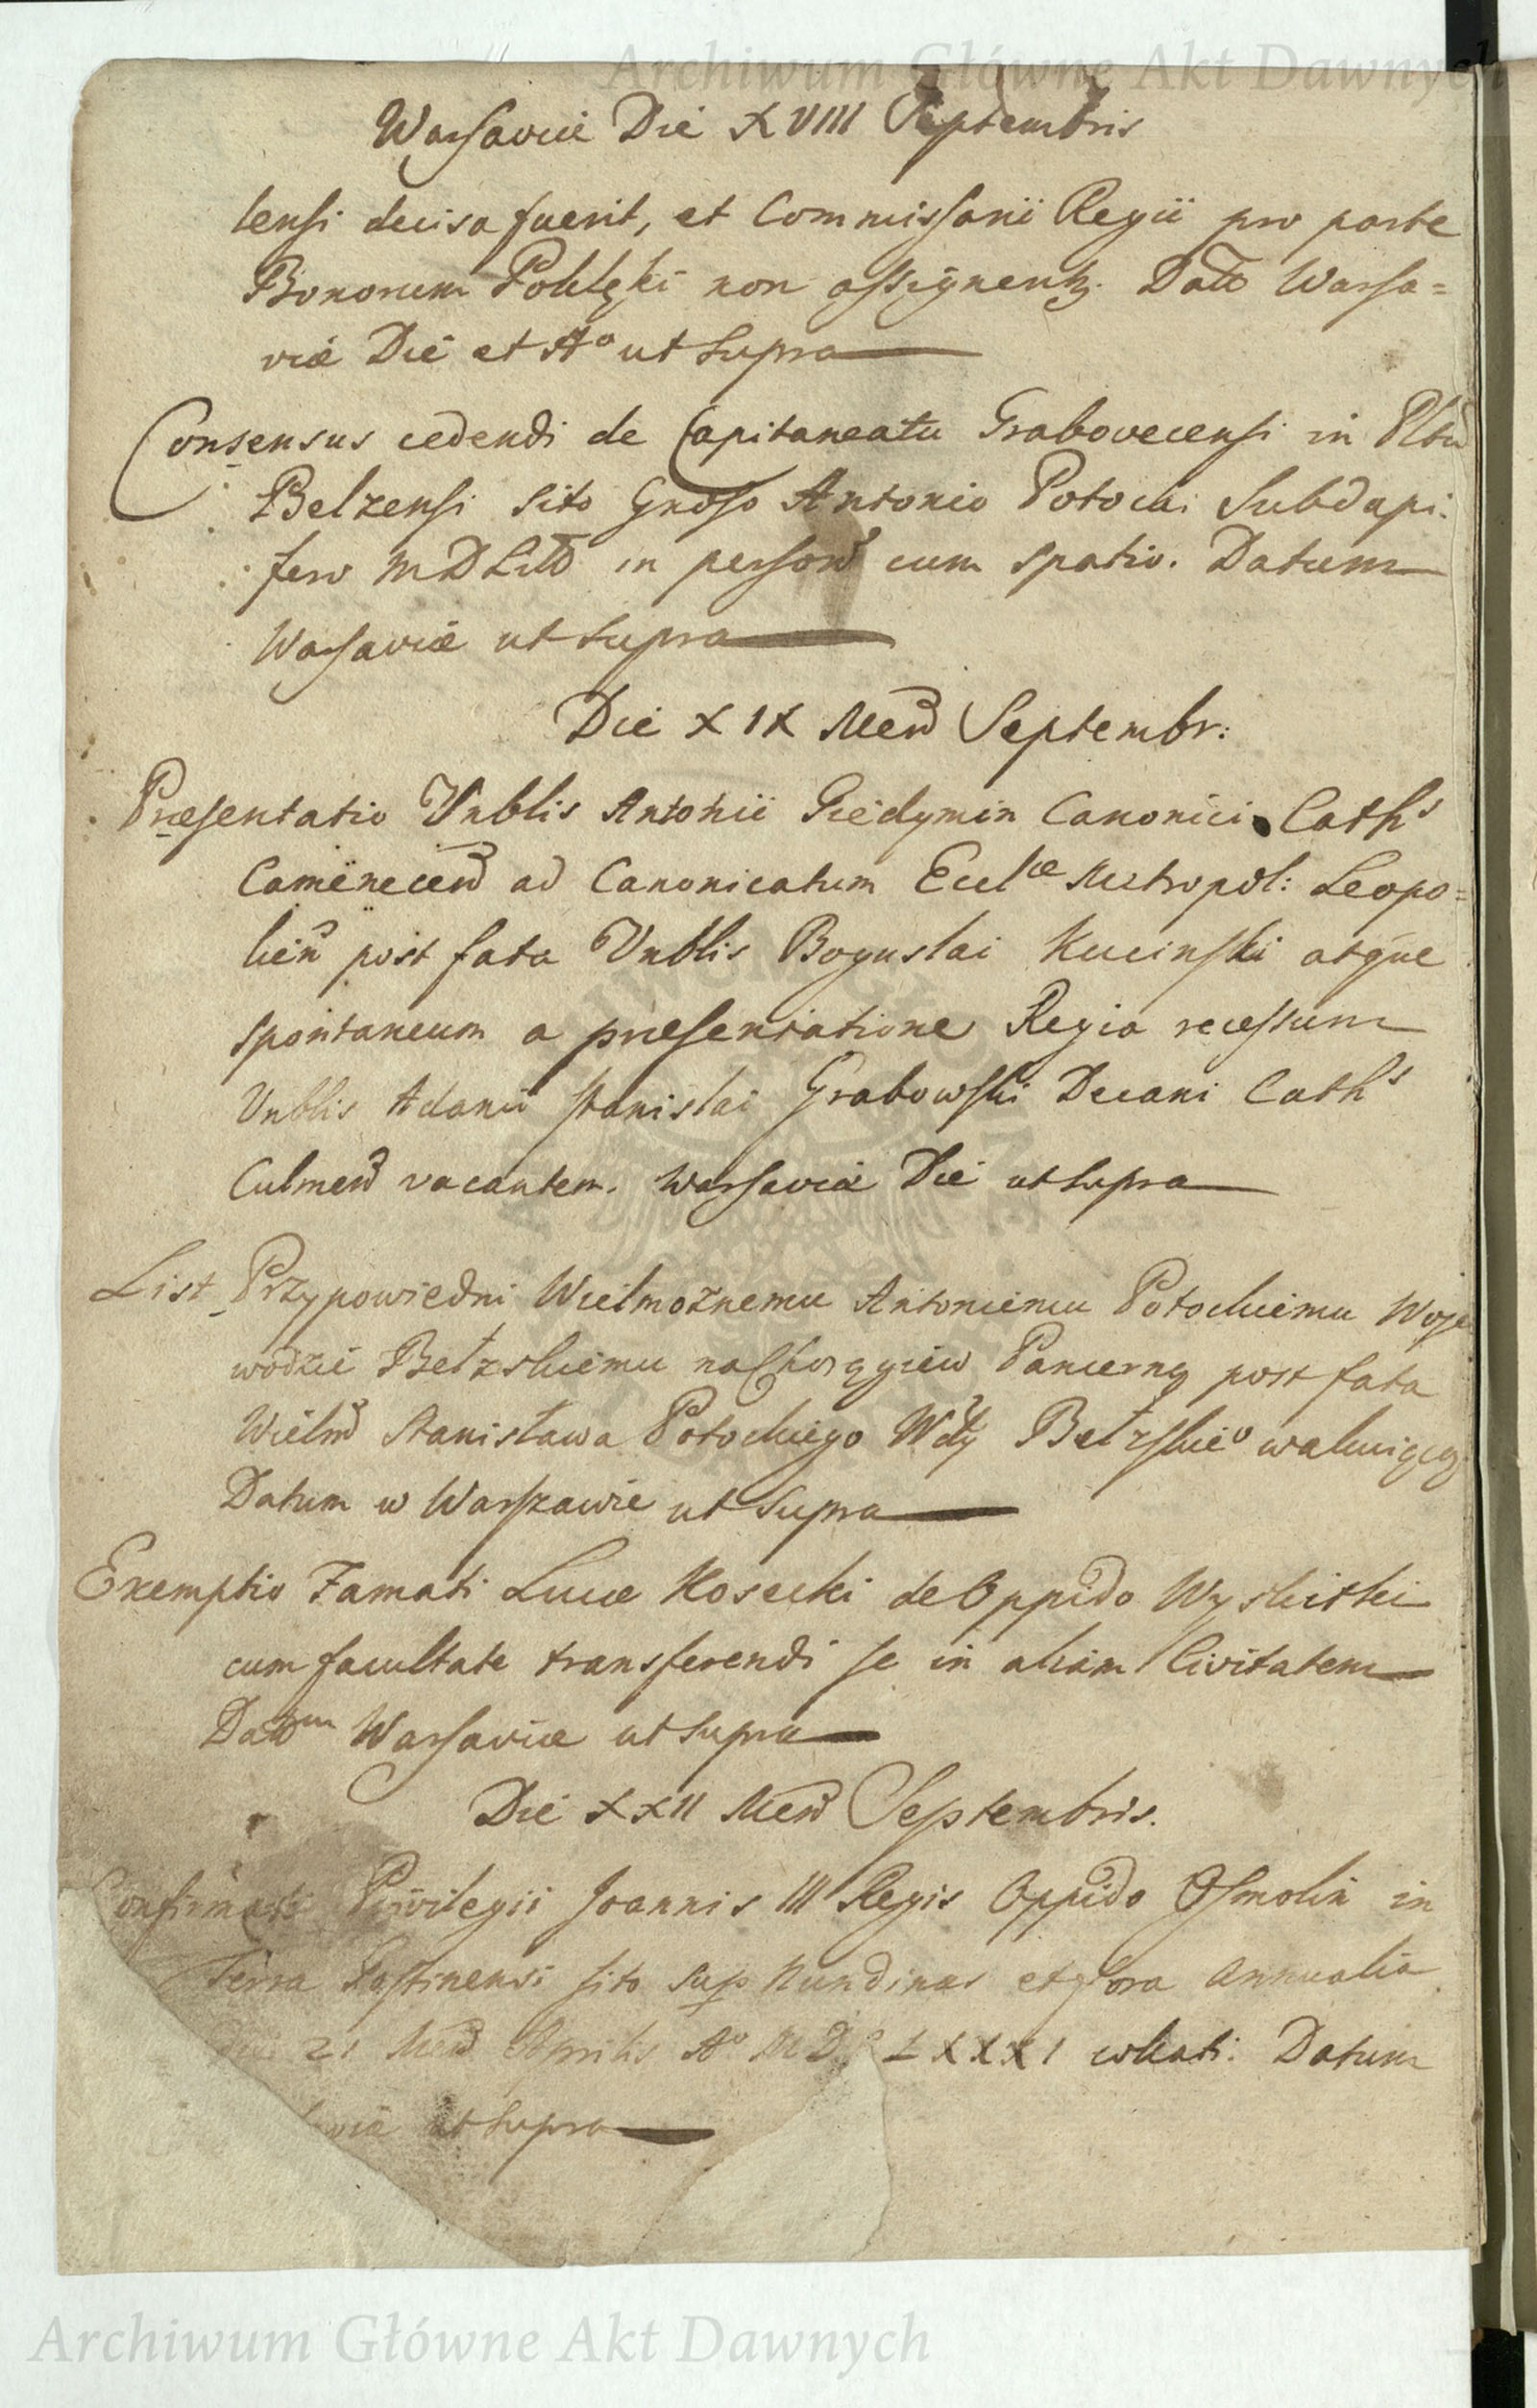 Archiwum Główne Akt Dawnych
Warsaviæ Die XVIII Septembris
lensi decisa fuerit, et Commissarii Regii pro parte
Bonorum non assignentz. Datt Warsa=
viæ Die et Aº ut supra
Consensus cedendi de Capitaneatu Grabovecensi in Pltu
Belzensi sito Gnoso Antonio Potocki Subdapi:
fero M D Litt in person cum spatio. Datum
Warsaviæ ut supra
Die XIX Men Septembr:
Præsentatio Vnblis Antonii Giedymin Canonici Cathˢ
Camenecen ad Canonicatum Eccl͏ᵃᵉ Metropol: Leopo=
lien post fata Vnblis Boguslai Kucinski atque
spontaneum a præsentatione Regia recessum
Vnblis Adami Stanislai Grabowski Decani Cathˢ
Culmen vacantem. Warsaviæ Die ut supra
List Przypowiedni Wielmożnemu Antoniemu Potockiemu Woje
wodzie Bełzskiemu na Chorągiew Pancerną post fata
Wielm Stanisława Potockiego Wdy Bełzskieº wakuiącą
Datum w Warszawie ut supra
Exemptio Famati Lucæ Kosecki de Oppido Wyskitki
cum facultate transferendi se in aliam Civitatem
Dattum Warsaviæ ut supra
Die XXII Men Septembris.
Privilegii Joannis III Regis Oppido Osmolin in
Terra Gostinensi sito sup Nundinas et fora Annualia
Die 21 Men Aprilis Aº MDCLXXXI collati. Datum
viæ ut supra
Archiwum Główne Akt Dawnych